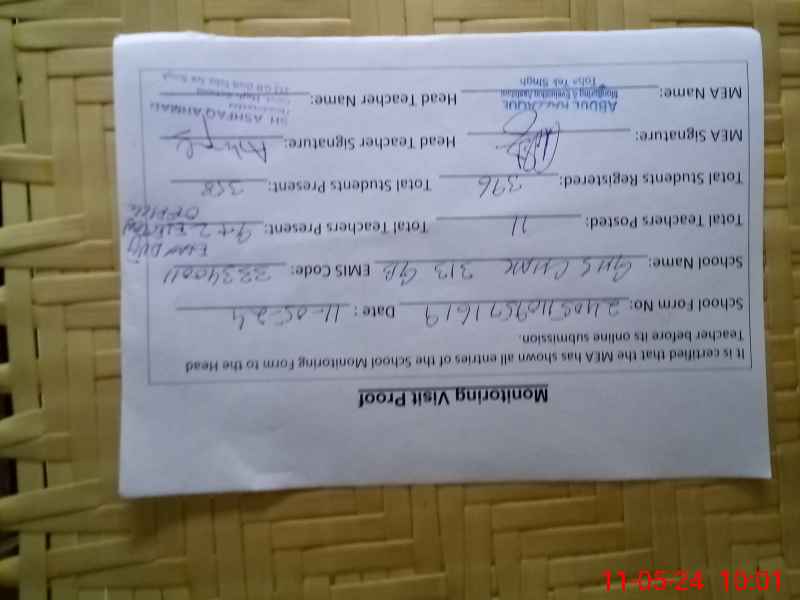 Monitoring Visit Proof
It is certified that the MEA has shown all entries of the School Monitoring Form to the Head
Teacher before its online submission.
School Form No: Date: 11-05-24
School Name: GHS CHAK 313 GB EMIS Code: 33340011
Total Teachers Posted: 11 Total Teachers Present: 9+2
Total Students Registered: 376 Total Students Present: 358
MEA Signature: Head Teacher Signature:
MEA Name: ABDUL Head Teacher Name: SH ASHFAQ AHMAD
Monitoring & Evaluation Assistant
Toba Tek Singh
11-05-24 10:01